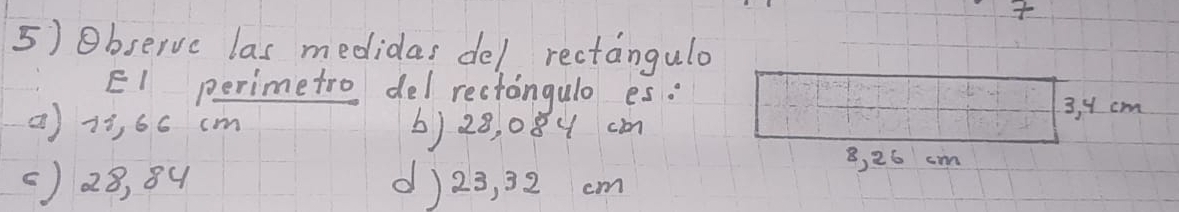 7
5) Observe las medidas del rectángulo
El perimetro del rectángulo es:
a) 11,66 cm b) 28,084 cm
c) 28,84 d) 23,32 cm
3,4 cm
8,26 cm